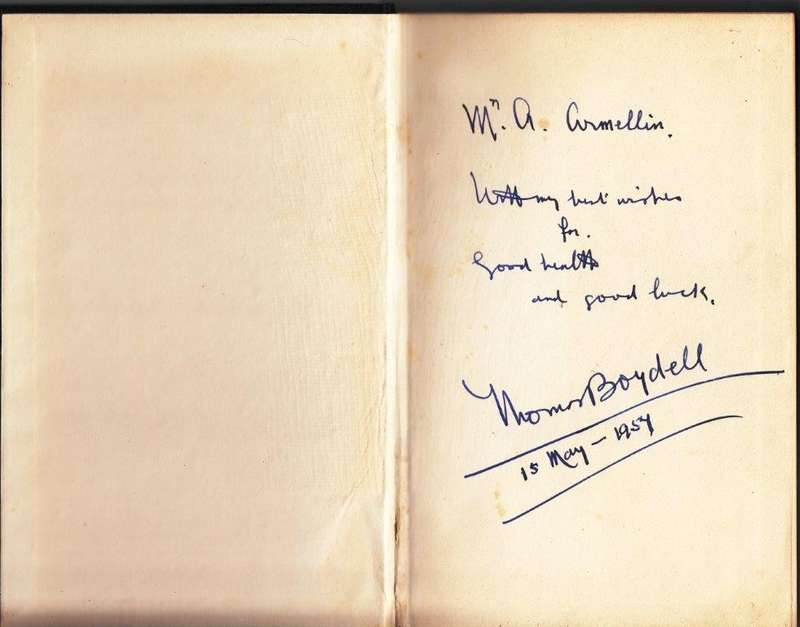 Mr. A. Armellin.
With my best wishes
for.
Good health
and good luck.
Thomas Boydell
15 May - 1954